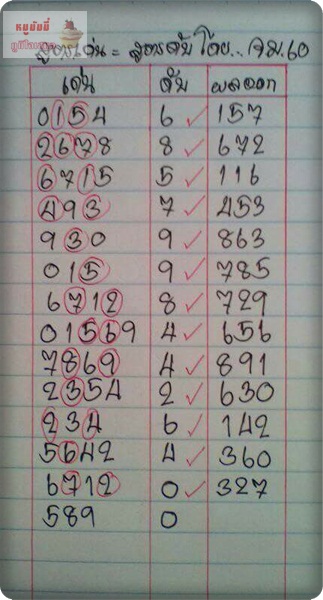 สูตรเด่น = สูตรดับ โดย.. จม.60
เด่น ดับ ผลออก
0154 6 ✓ 157
2678 8 ✓ 672
6715 5 ✓ 116
493 7 ✓ 453
930 9 ✓ 863
015 9 ✓ 785
6712 8 ✓ 729
01569 4 ✓ 656
7869 4 ✓ 891
2354 2 ✓ 630
234 6 ✓ 142
5642 4 ✓ 360
6712 0 ✓ 327
589 0